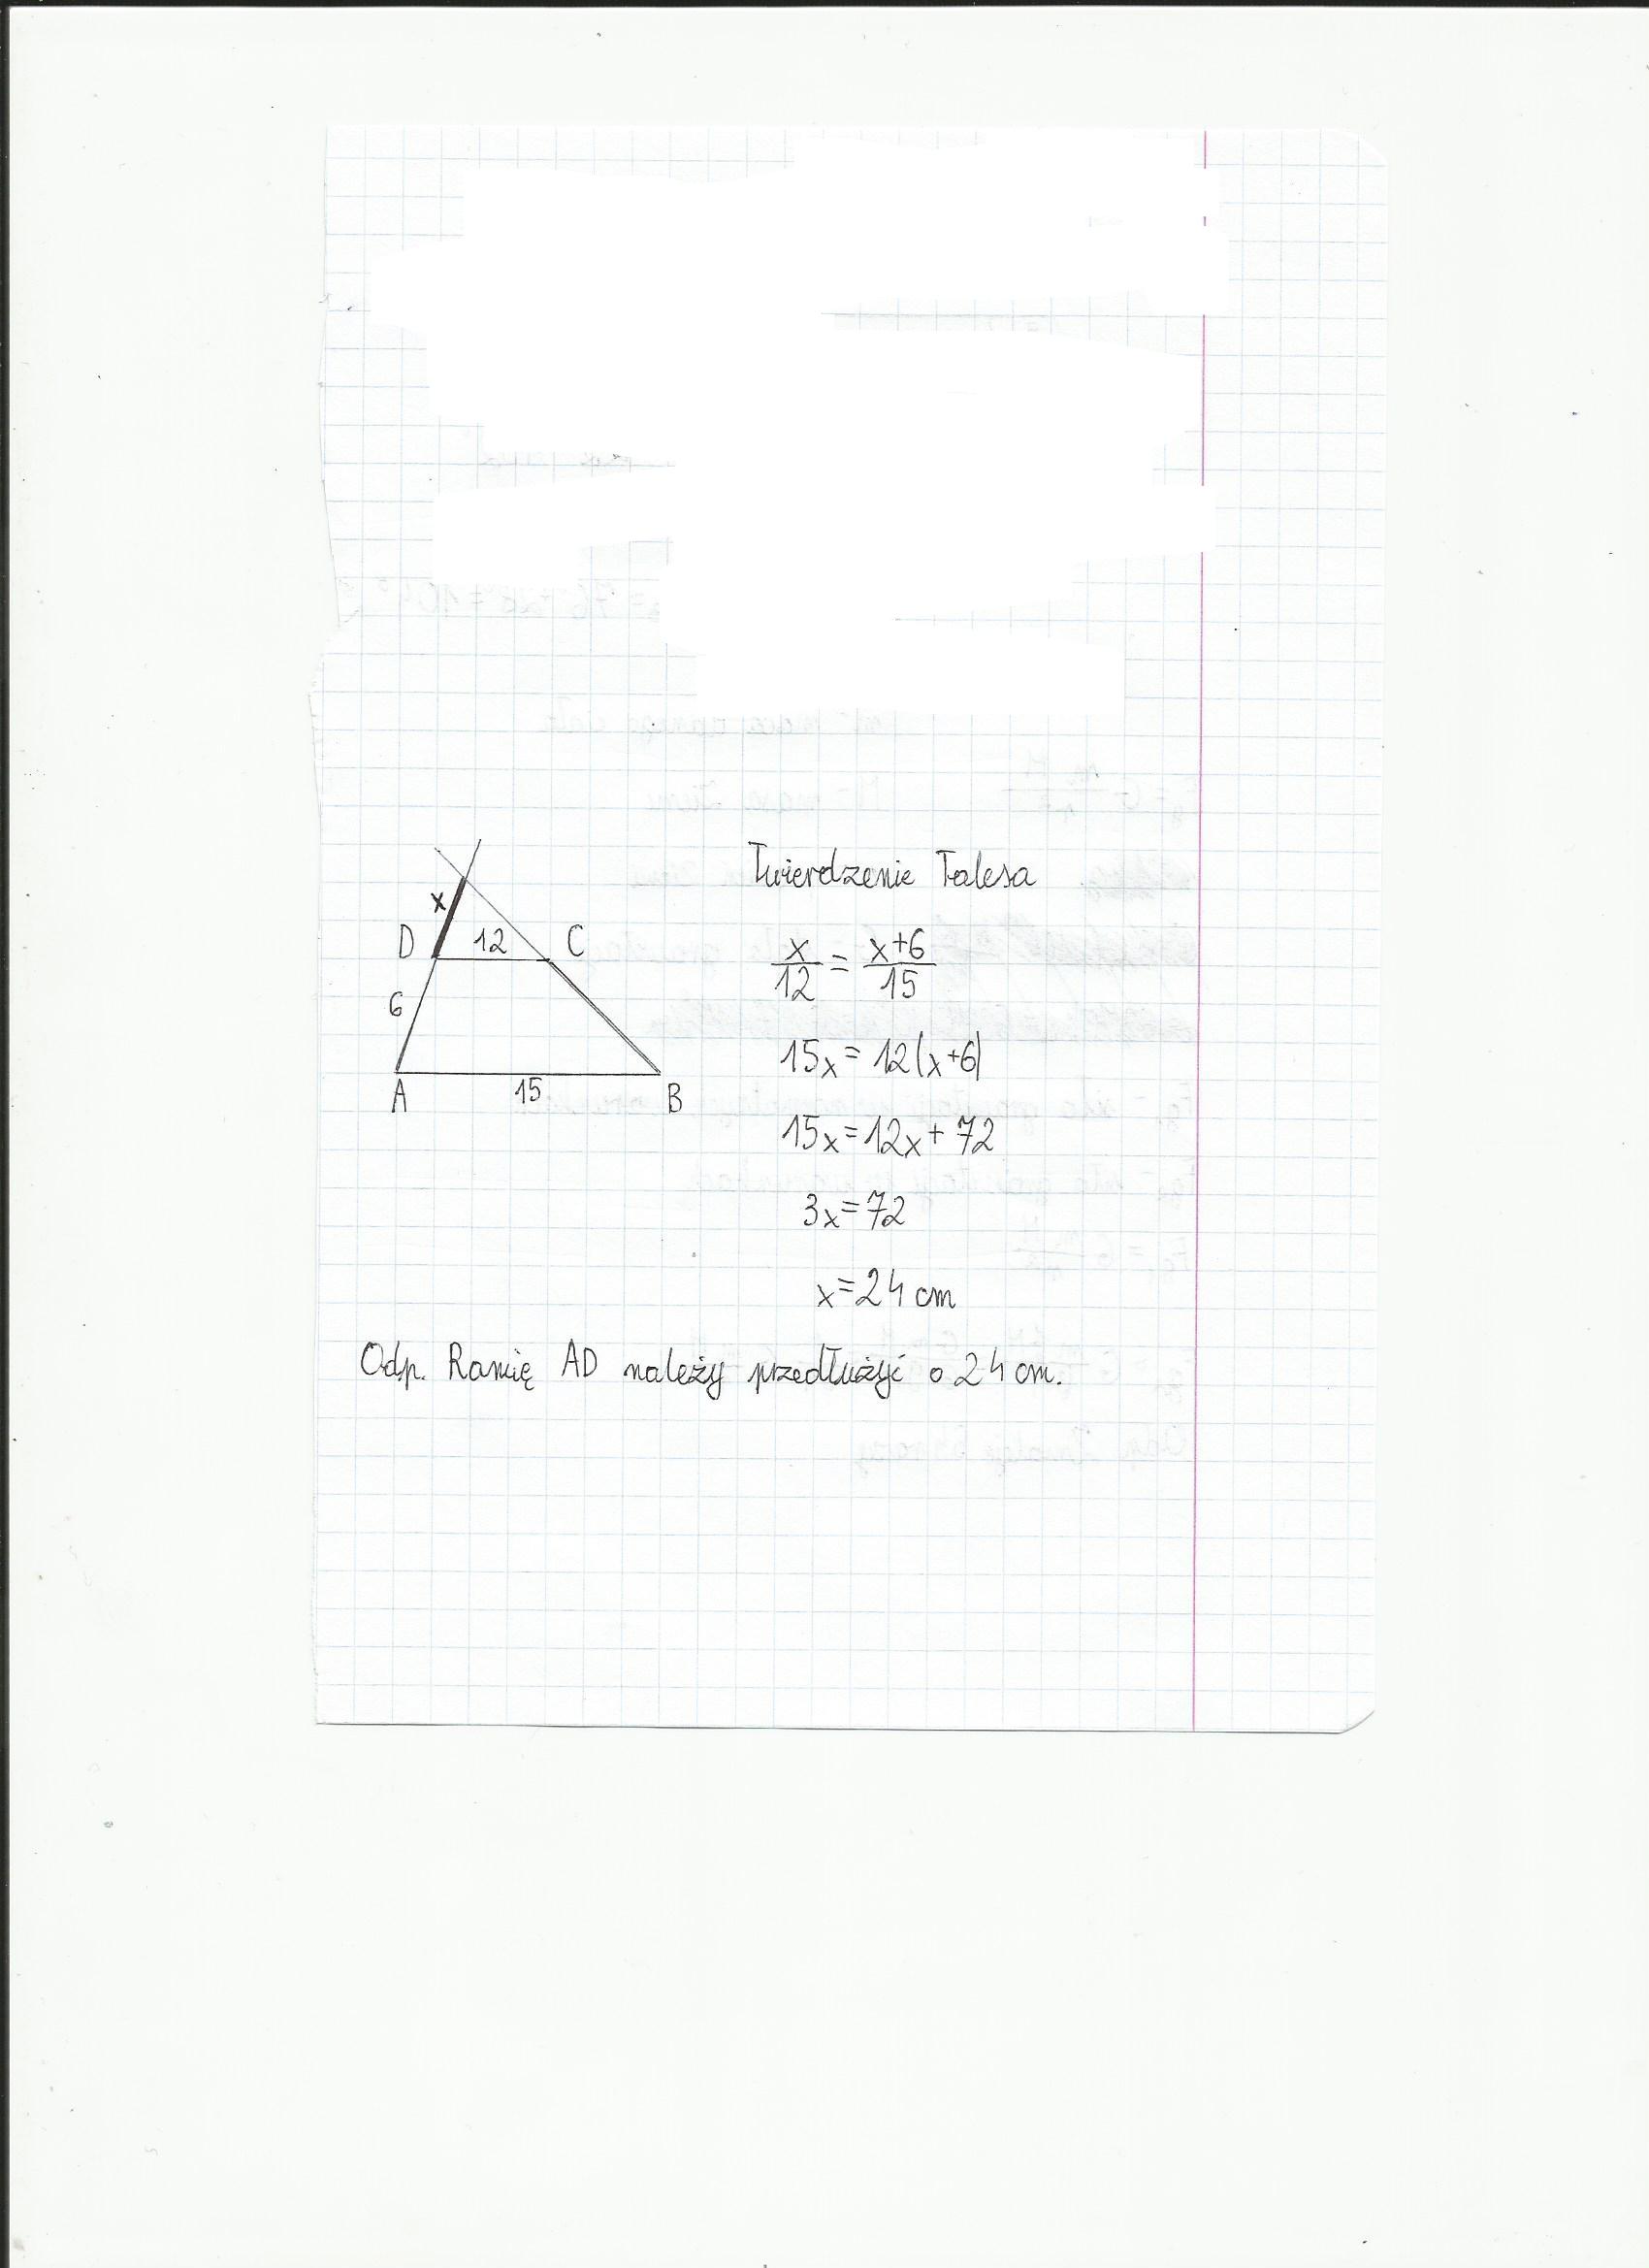 Twierdzenie Talesa
x
D 12 C
6
A 15 B
x/12 = x+6/15
15x = 12(x+6)
15x = 12x + 72
3x = 72
x = 24 cm
Odp. Ramię AD należy przedłużyć o 24 cm.